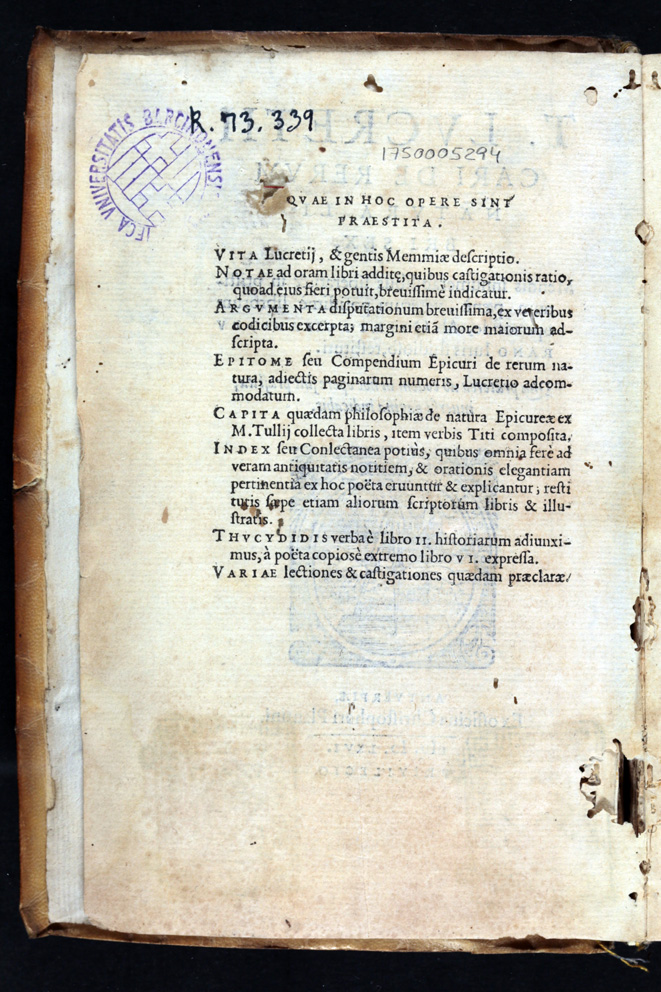 R. 73. 339
1750005294
BIBLIOTECA VNIVERSITATIS BARCINONENSIS
QVAE IN HOC OPERE SINT
PRAESTITA.
VITA Lucretij, & gentis Memmiæ descriptio.
NOTAE ad oram libri additę, quibus castigationis ratio,
quoad eius fieri potuit, breuissimè indicatur.
ARGVMENTA disputationum breuissima, ex veteribus
codicibus excerpta; margini etiã more maiorum ad-
scripta.
EPITOME seu Compendium Epicuri de rerum na-
tura, adiectis paginarum numeris, Lucretio adcom-
modatum.
CAPITA quædam philosophiæ de natura Epicureæ ex
M. Tullij collecta libris, item verbis Titi composita.
INDEX seu Conlectanea potiùs, quibus omnia ferè ad
veram antiquitatis notitiem, & orationis elegantiam
pertinentia ex hoc poëta eruuntur & explicantur; resti
tutis sæpe etiam aliorum scriptorum libris & illu-
stratis.
THVCYDIDIS verba è libro II. historiarum adiunxi-
mus, à poëta copiosè extremo libro VI. expressa.
VARIAE lectiones & castigationes quædam præclaræ.